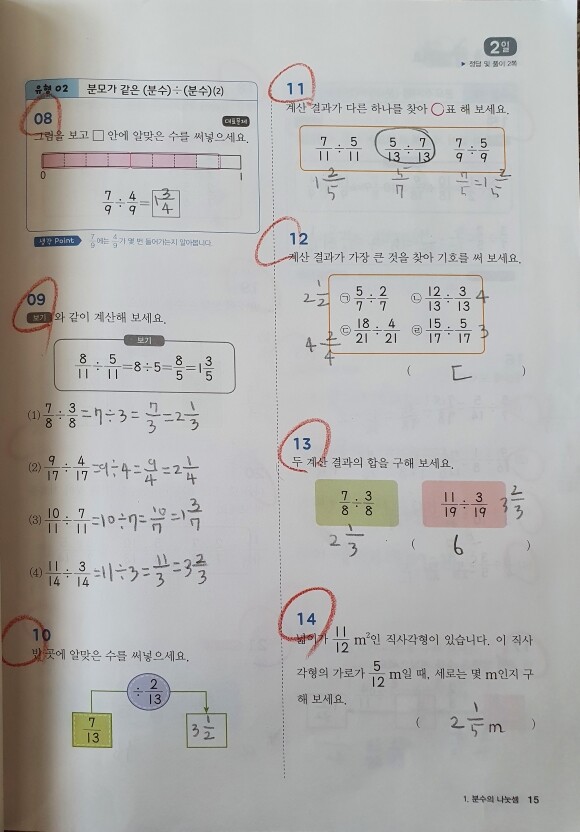 2일
▶ 정답 및 풀이 2쪽
유형 02 분모가 같은 (분수)÷(분수)(2)
08
대표문제
그림을 보고 □ 안에 알맞은 수를 써넣으세요.
0 1
7/9 ÷ 4/9 = 1 3/4
생각 Point 7/9에는 4/9가 몇 번 들어가는지 알아봅니다.
09
보기 와 같이 계산해 보세요.
보기
8/11 ÷ 5/11 = 8÷5 = 8/5 = 1 3/5
(1) 7/8 ÷ 3/8 = 7÷3 = 7/3 = 2 1/3
(2) 9/17 ÷ 4/17 = 9÷4 = 9/4 = 2 1/4
(3) 10/11 ÷ 7/11 = 10÷7 = 10/7 = 1 3/7
(4) 11/14 ÷ 3/14 = 11÷3 = 11/3 = 3 2/3
10
빈 곳에 알맞은 수를 써넣으세요.
÷ 2/13
7/13 3 1/2
11
계산 결과가 다른 하나를 찾아 ○표 해 보세요.
7/11 ÷ 5/11 5/13 ÷ 7/13 7/9 ÷ 5/9
1 2/5 5/7 7/5 = 1 2/5
12
계산 결과가 가장 큰 것을 찾아 기호를 써 보세요.
2 1/2 ㉠ 5/7 ÷ 2/7 ㉡ 12/13 ÷ 3/13 4
4 2/4 ㉢ 18/21 ÷ 4/21 ㉣ 15/17 ÷ 5/17 3
( ㄷ )
13
두 계산 결과의 합을 구해 보세요.
7/8 ÷ 3/8 11/19 ÷ 3/19 3 2/3
2 1/3 ( 6 )
14
넓이가 11/12 m²인 직사각형이 있습니다. 이 직사
각형의 가로가 5/12 m일 때, 세로는 몇 m인지 구
해 보세요.
( 2 1/5 m )
1. 분수의 나눗셈 15